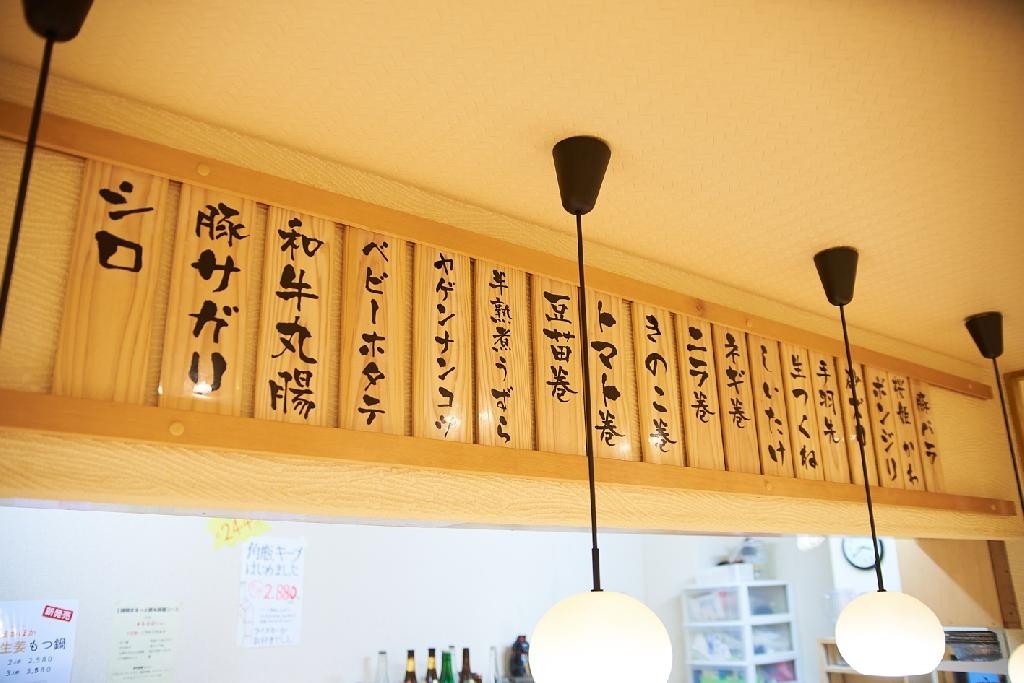 シロ
豚サガリ
和牛丸腸
ベビーホタテ
ヤゲンナンコツ
半熟煮うずら
豆苗巻
トマト巻
きのこ巻
ニラ巻
ネギ巻
しいたけ
生つくね
手羽先
ボンジリ
かわ
豚バラ
角瓶キープ
はじめました
2,880
新発売
生姜もつ鍋